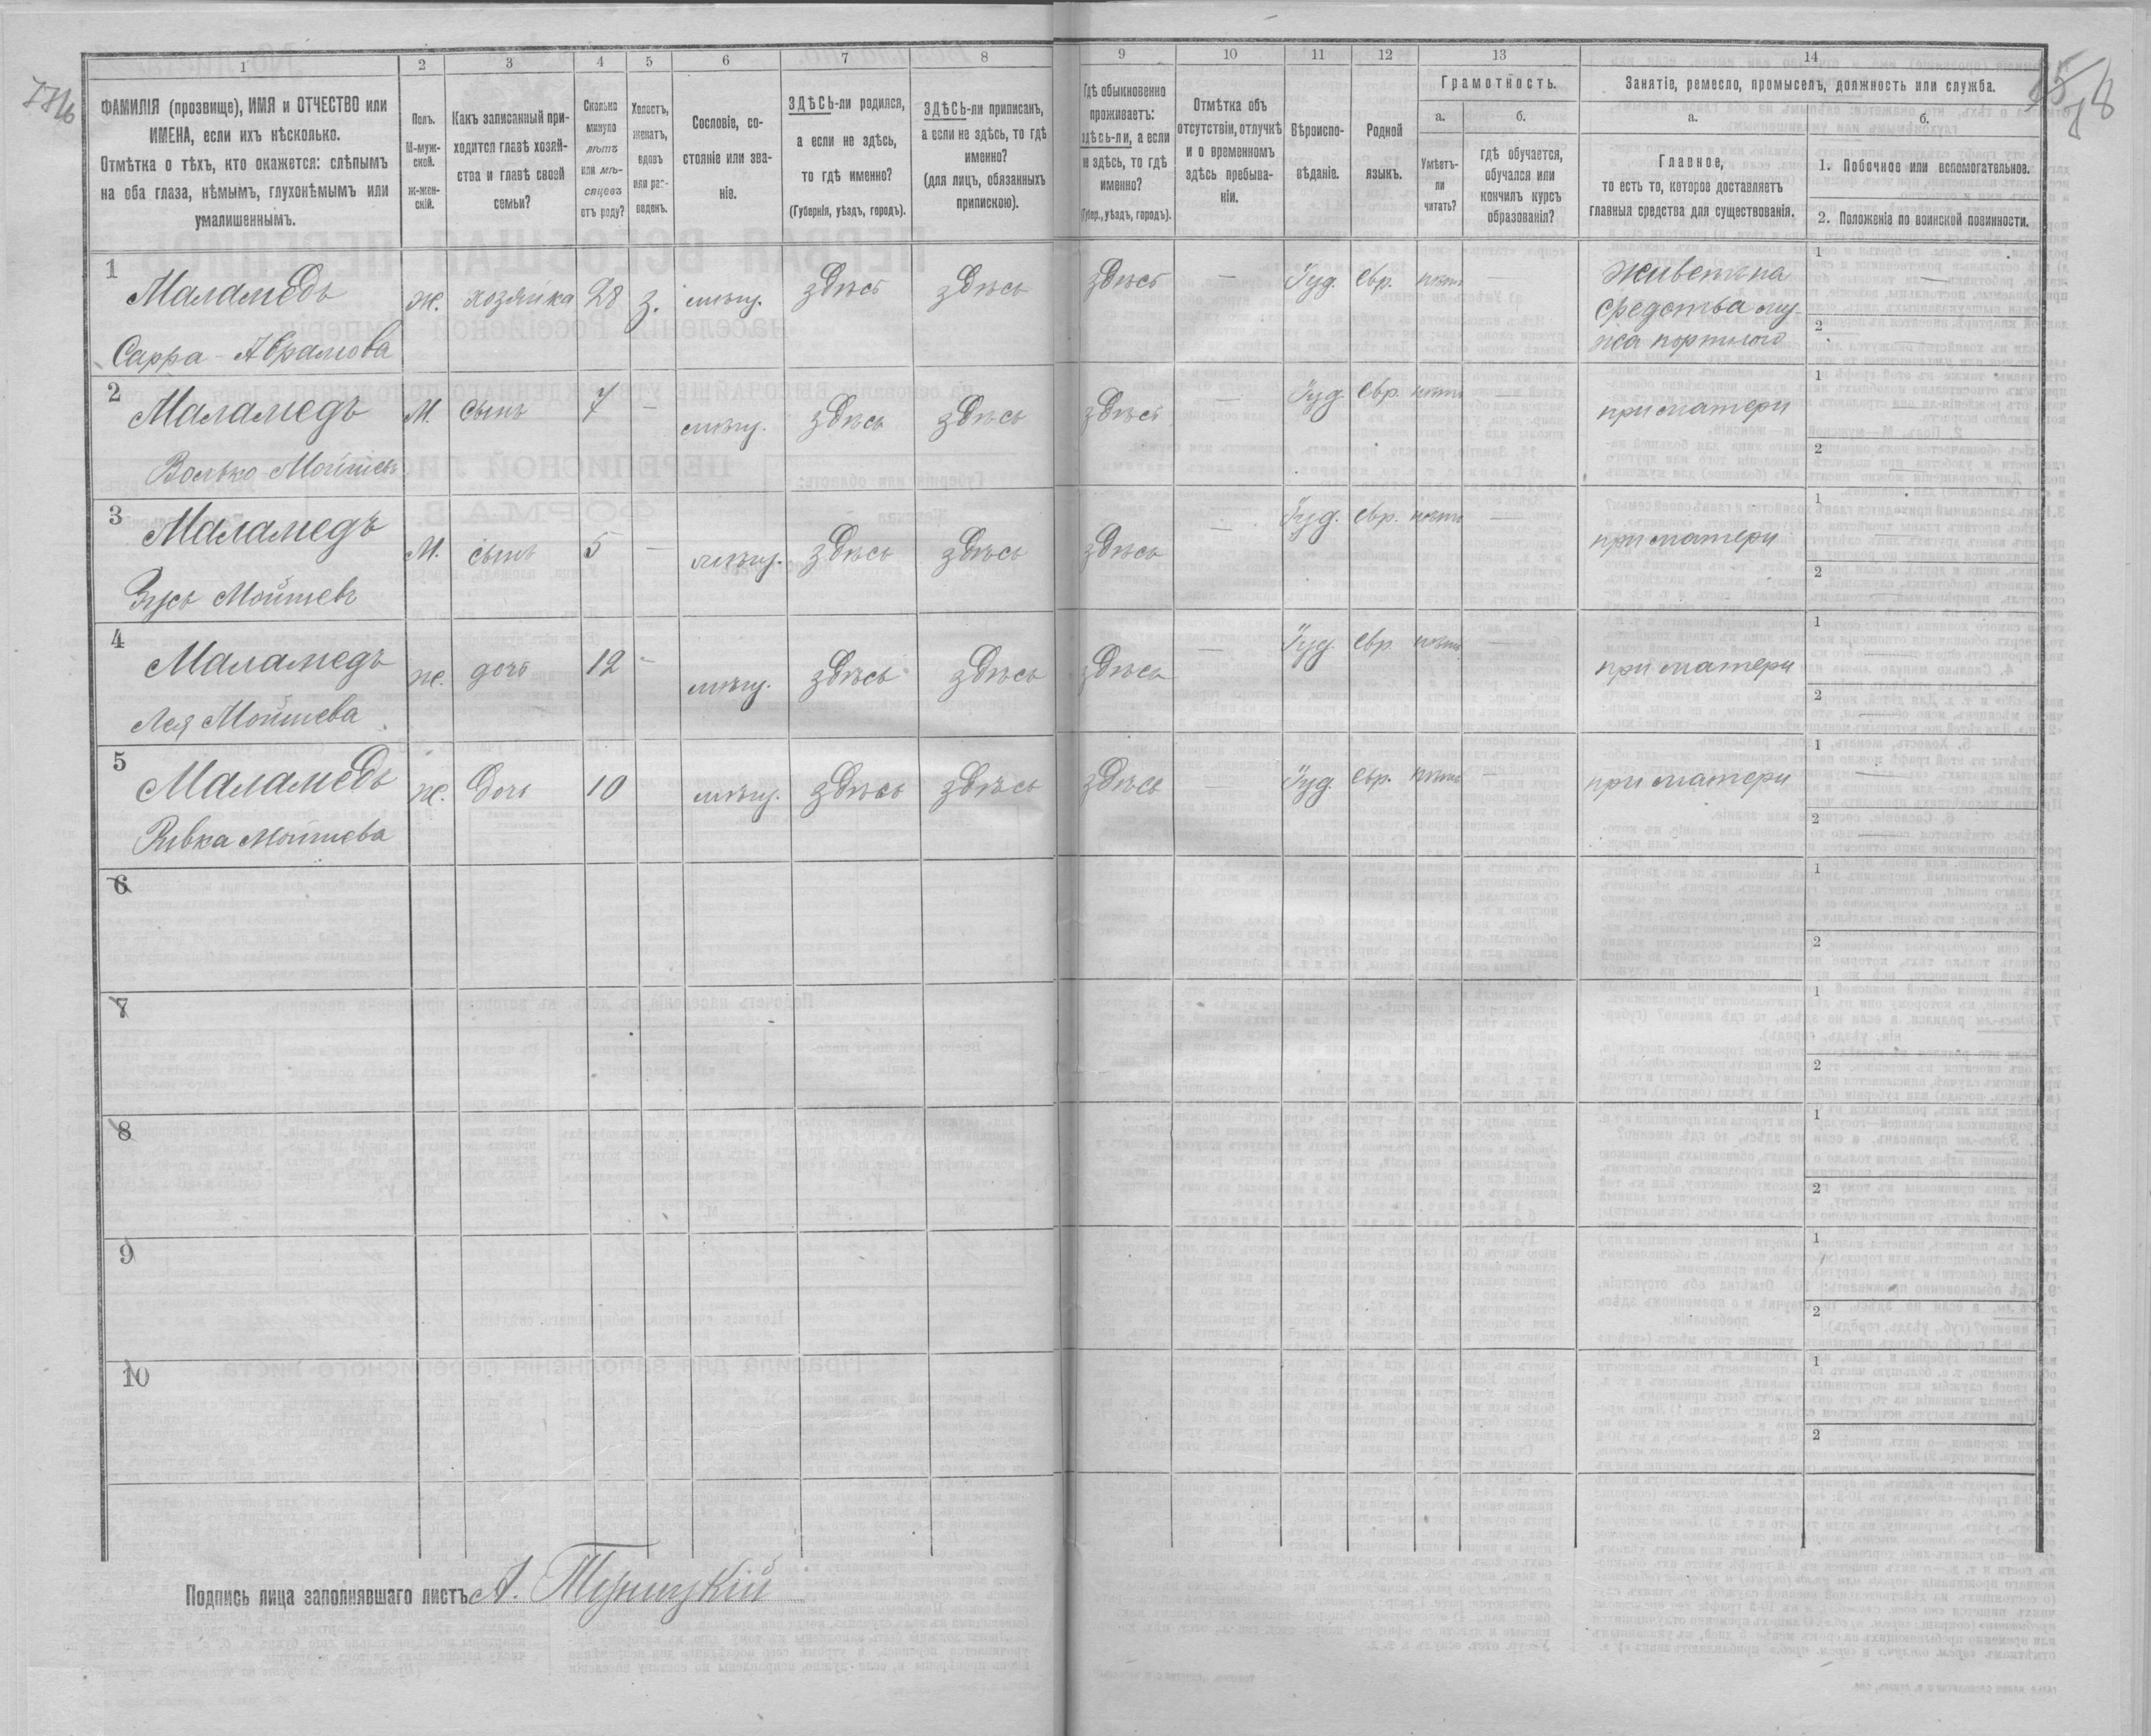 1 2 3 4 5 6 7 8 9 10 11 12 13 14
ФАМИЛІЯ (прозвище), ИМЯ и ОТЧЕСТВО или
ИМЕНА, если ихъ нѣсколько.
Отмѣтка о тѣхъ, кто окажется: слѣпымъ
на оба глаза, нѣмымъ, глухонѣмымъ или
умалишеннымъ.
Полъ.
М-муж-
ской.
ж-жен-
скій.
Какъ записанный при-
ходится главѣ хозяй-
ства и главѣ своей
семьи?
Сколько
минуло
лѣтъ
или мѣ-
сяцевъ
отъ роду?
Холостъ,
женатъ,
вдовъ
или раз-
веденъ.
Сословіе, со-
стояніе или зва-
ніе.
ЗДѢСЬ-ли родился,
а если не здѣсь,
то гдѣ именно?
(Губернія, уѣздъ, городъ).
ЗДѢСЬ-ли приписанъ,
а если не здѣсь, то гдѣ
именно?
(для лицъ, обязанныхъ
припискою).
Гдѣ обыкновенно
проживаетъ:
здѣсь-ли, а если
не здѣсь, то гдѣ
именно?
(Губер., уѣздъ, городъ).
Отмѣтка объ
отсутствіи, отлучкѣ
и о временномъ
здѣсь пребыва-
ніи.
Вѣроиспо-
вѣданіе.
Родной
языкъ.
Грамотность.
а.
Умѣетъ-
ли
читать?
б.
гдѣ обучается,
обучался или
кончилъ курсъ
образованія?
Занятіе, ремесло, промыселъ, должность или служба.
а.
Главное,
то есть то, которое доставляетъ
главныя средства для существованія.
б.
1. Побочное или вспомогательное.
2. Положеніе по воинской повинности.
1 Маламедъ
Сарра Абрамова
ж. хозяйка 28 з. мѣщ. здѣсь здѣсь здѣсь — Іуд. Евр. нѣтъ —
Живетъ на
средства му-
жа портного
1 —
2
2 Маламедъ
Волько Мойшевъ
М. сынъ 7 — мѣщ. здѣсь здѣсь здѣсь — Іуд. Евр. нѣтъ —
при матери
1 —
2 —
3 Маламедъ
Зусь Мойшевъ
М. сынъ 5 — мѣщ. здѣсь здѣсь здѣсь — Іуд. Евр. нѣтъ —
при матери
1 —
2 —
4 Маламедъ
Лея Мойшева
ж. дочь 12 — мѣщ. здѣсь здѣсь здѣсь — Іуд. Евр. нѣтъ —
при матери
1 —
2 —
5 Маламедъ
Ривка Мойшева
ж. дочь 10 мѣщ. здѣсь здѣсь здѣсь — Іуд. Евр. нѣтъ —
при матери
1 —
2 —
6
1
2
7
1
2
8
1
2
9
1
2
10
1
2
Подпись лица заполнявшаго листъ А.